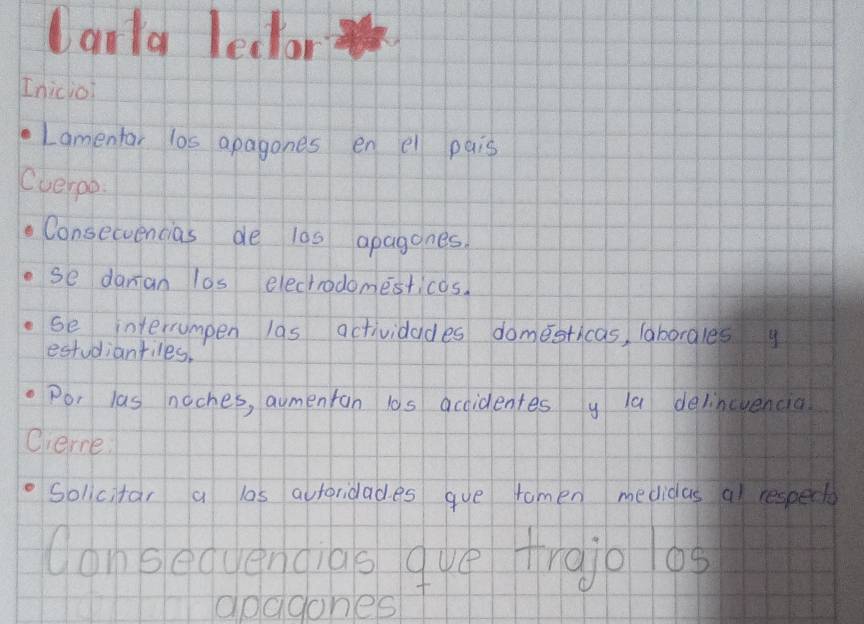 Carta lector
Inicio:
• Lamentar los apagones en el pais
Cuerpo:
• Consecuencias de los apagones.
• se dañan los electrodomésticos.
• Se interrumpen las actividades domésticas, laborales y
estudiantiles.
• Por las noches, aumentan los accidentes y la delincuencia.
Cierre:
• Solicitar a las autoridades que tomen medidas al respecto
Consecuencias que trajo los
apagones